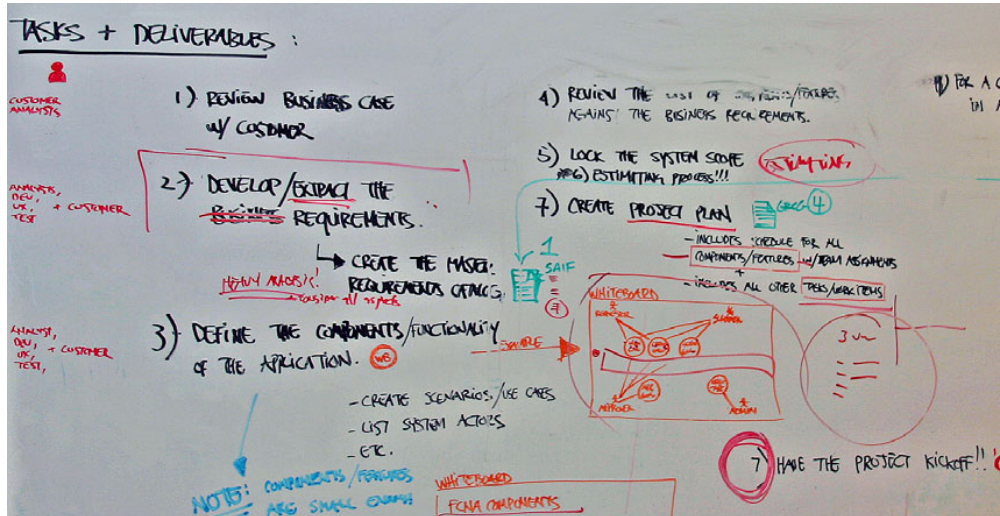 TASKS + DELIVERABLES:
CUSTOMER
ANALYSTS
1) REVIEW BUSINESS CASE
W/ CUSTOMER
ANALYSTS,
DEV,
UX, + CUSTOMER
TEST
2) DEVELOP/EXTRACT THE
BUSINESS REQUIREMENTS.
CREATE THE MASTER
REQUIREMENTS CATALOG
HEAVY ANALYSIS!
ANALYST,
DEV,
UX, + CUSTOMER
TEST,
3) DEFINE THE COMPONENTS/FUNCTIONALITY
OF THE APPLICATION. WB
- CREATE SCENARIOS/USE CASES
- LIST SYSTEM ACTORS
- ETC.
NOTE: COMPONENTS/FEATURES
ARE SMALL ENOUGH
WHITEBOARD
COMPONENTS
4) REVIEW THE LIST OF /FEATURES
AGAINST THE BUSINESS REQUIREMENTS.
5) LOCK THE SYSTEM SCOPE
6) ESTIMATING PROCESS!!!
7) CREATE PROJECT PLAN GREG 4
- INCLUDES SCHEDULE FOR ALL
COMPONENTS/FEATURES W/TEAM ASSIGNMENTS
+
- INCLUDES ALL OTHER TASKS/WORK ITEMS
1
SAIF
EXAMPLE
WHITEBOARD
APPROVER
ADMIN
3
7) HAVE THE PROJECT KICKOFF!!
FOR A
IN